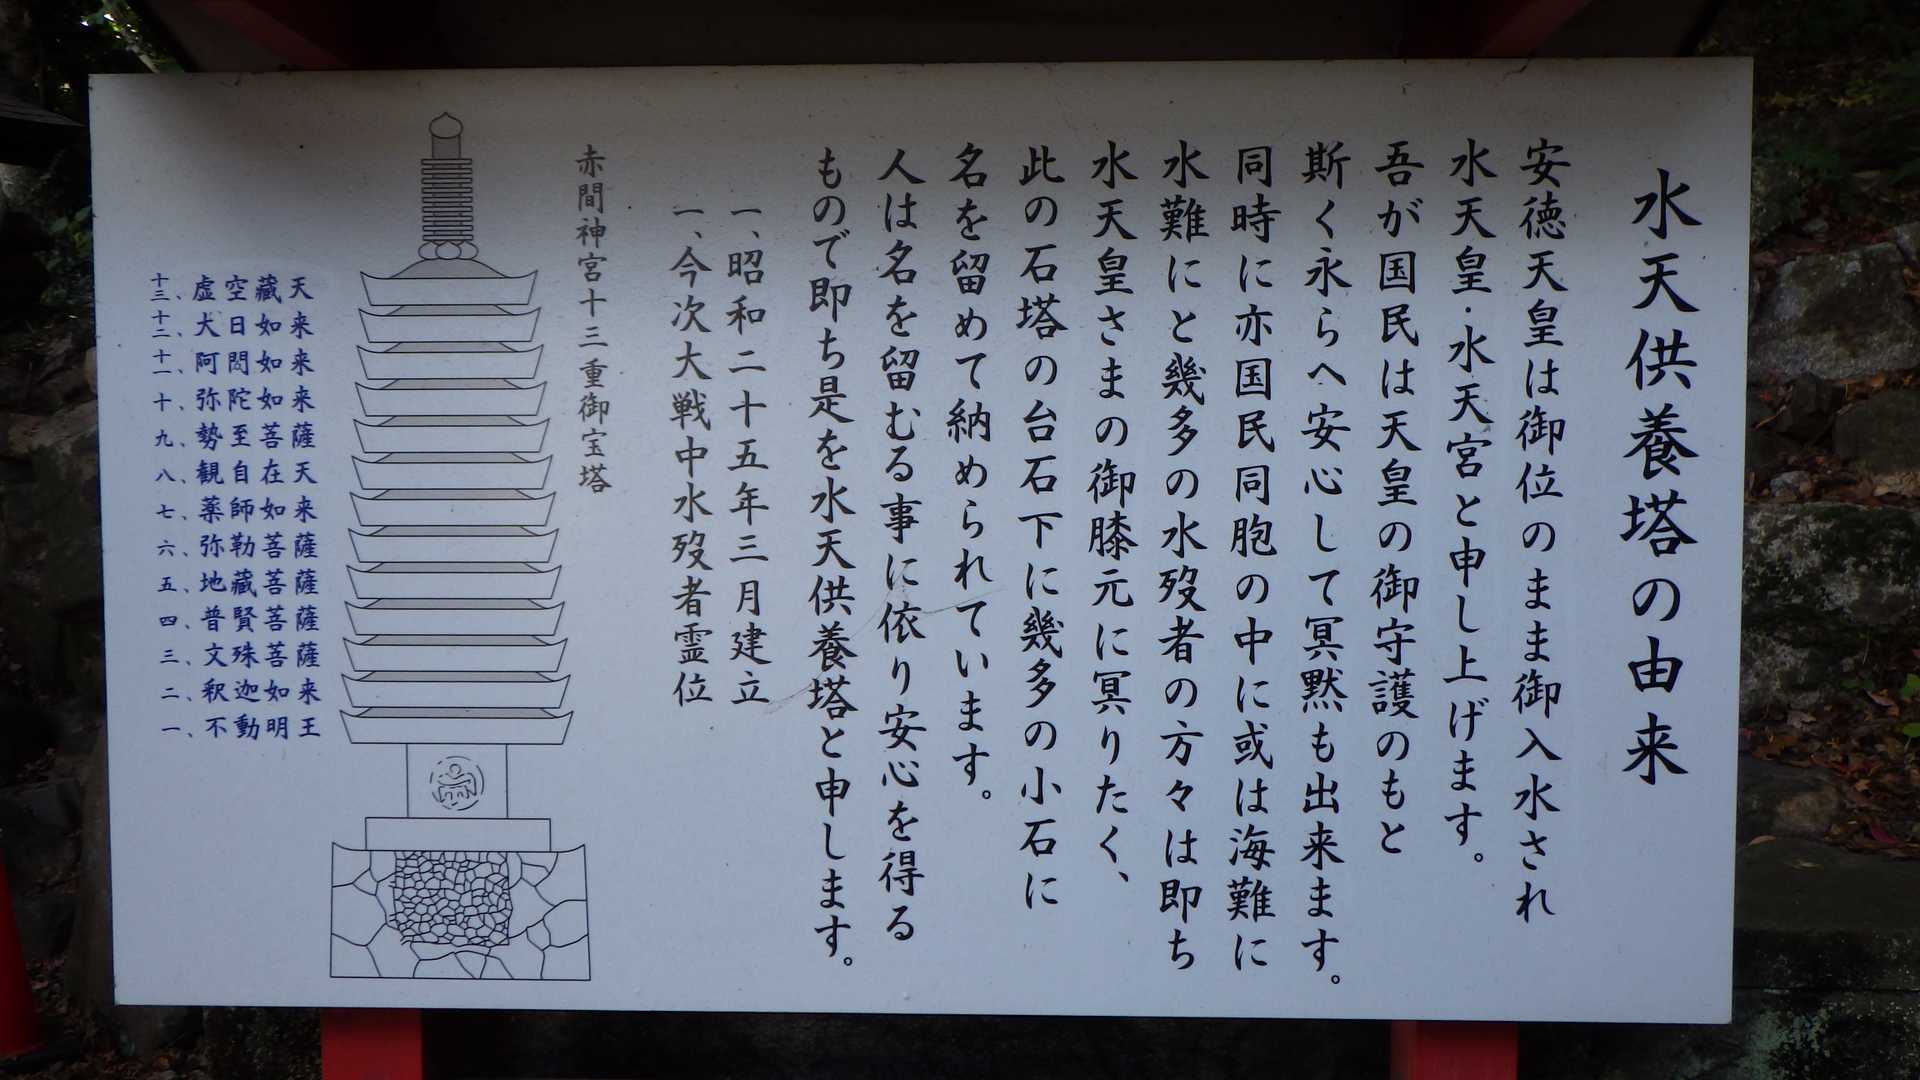 水天供養塔の由来
安徳天皇は御位のまま御入水され
水天皇・水天宮と申し上げます。
吾が国民は天皇の御守護のもと
斯く永らへ安心して冥黙も出来ます。
同時に亦国民同胞の中に或は海難に
水難にと幾多の水歿者の方々は即ち
水天皇さまの御膝元に冥りたく、
此の石塔の台石下に幾多の小石に
名を留めて納められています。
人は名を留むる事に依り安心を得る
もので即ち是を水天供養塔と申します。
一、昭和二十五年三月建立
一、今次大戦中水歿者霊位
赤間神宮十三重御宝塔
十三、虚空藏天
十二、大日如来
十一、阿閦如来
十、弥陀如来
九、勢至菩薩
八、観自在天
七、薬師如来
六、弥勒菩薩
五、地藏菩薩
四、普賢菩薩
三、文殊菩薩
二、釈迦如来
一、不動明王